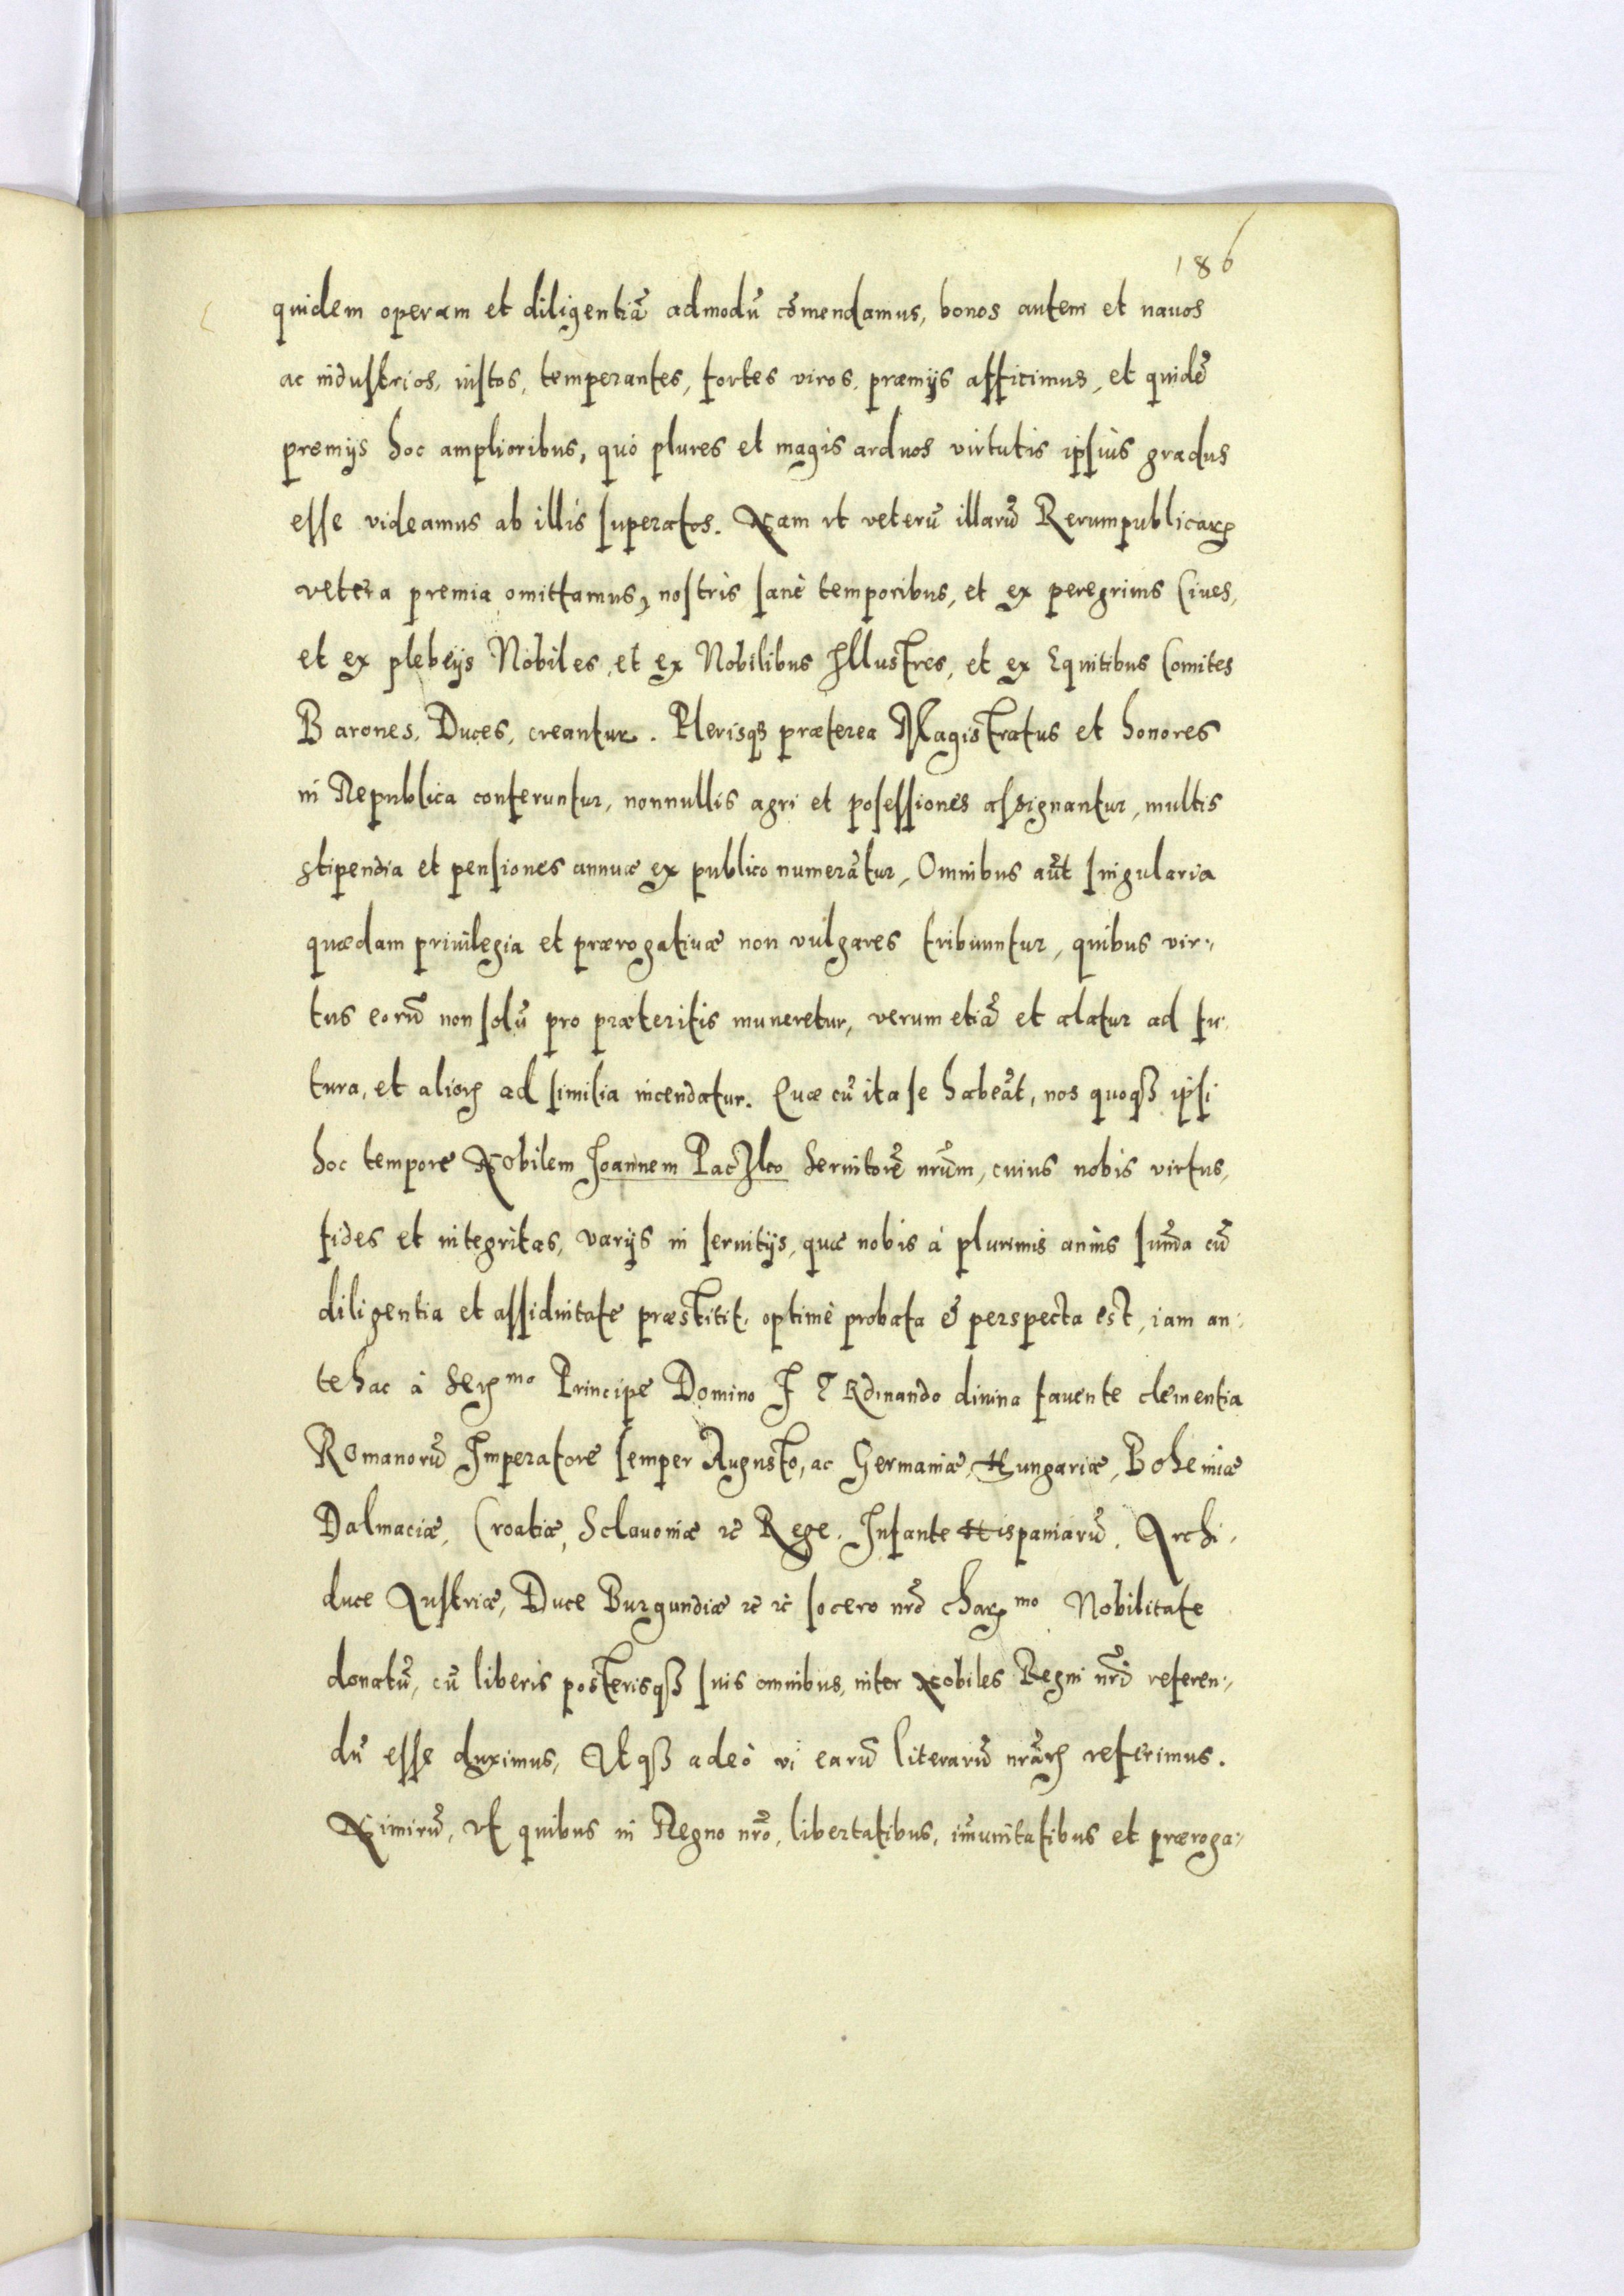 186
quidem operam et diligentiã admodũ cõmendamus, bonos autem et nauos
ac industrios, iustos, temperantes, fortes viros, præmijs afficimus, et quidẽ
premijs hoc amplioribus, quò plures et magis arduos virtutis ipsius gradus
esse videamus ab illis superatos. Nam vt veterũ illarũ Rerumpublicarꝝ
vetera premia omittamus, nostris sanè temporibus, et ex peregrinis Ciues,
et ex plebeijs Nobiles, et ex Nobilibus Illustres, et ex Equitibus Comites
Barones, Duces, creantur. Plerisqȝ præterea Magistratus et honores
in Republica conferuntur, nonnullis agri et posessiones assignantur, multis
stipendia et pensiones annuæ ex publico numerãtur, Omnibus aũt singularia
quædam priuilegia et prærogatiuæ non vulgares tribuuntur, quibus vir-
tus eorũ non solũ pro præteritis muneretur, verum etiã et alatur ad fu-
tura, et alioꝝ ad similia incendatur. Quæ cũ ita se habeãt, nos quoqȝ ipsi
hoc tempore Nobilem Joannem Seruitorẽ nrũm, cuius nobis virtus,
fides et integritas, varijs in seruitijs, quæ nobis à plurimis annis sum̃a cũ
diligentia et assiduitate præstitit, optimè probata & perspecta est, iam an-
tehac à Serꝝmo Principe Domino FERdinando diuina fauente clementia
Romanorũ Imperatore semper Augusto, ac Germaniæ, Hungariæ, Bohemiæ
Dalmaciæ, Croatiæ, Sclauoniæ ꝛc Rege, Infante Hispaniarũ, Archi-
duce Austriæ, Duce Burgundiæ ꝛc ꝛc socero nrõ charꝝmo Nobilitate
donatũ, cũ liberis posterisqȝ suis omnibus, inter Nobiles Regni nrĩ referen-
dũ esse duximus, Atqȝ adeò vi earũ literarũ nrãꝝ referimus.
Nimirũ, vt quibus in Regno nrõ, libertatibus, im̃unitatibus et præroga-